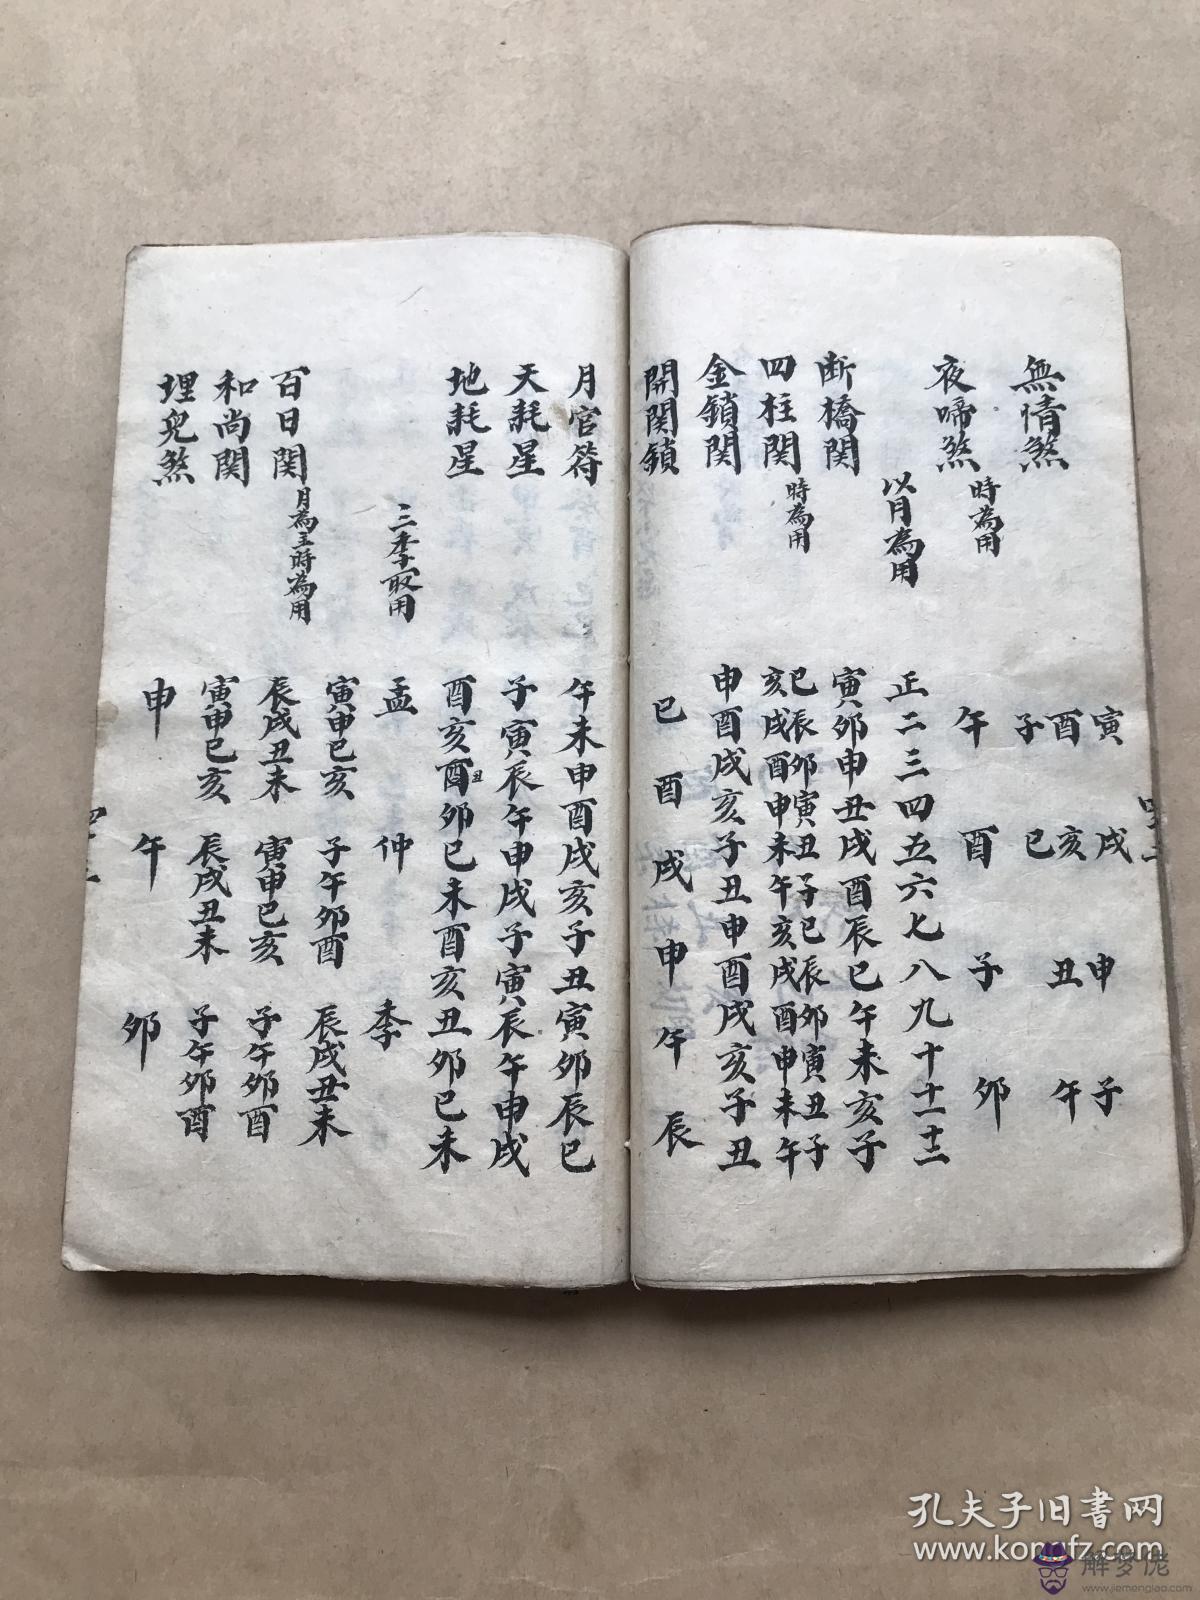 無情煞 寅戌申子
酉亥丑午
子巳
夜啼煞 時為用 午酉子卯
以月為用 正二三四五六七八九十十一十二
断橋関 寅卯申丑戌酉辰巳午未亥子
四柱関 時為用 巳辰卯寅丑子巳辰卯寅丑子
亥戌酉申未午亥戌酉申未午
金鎖関 申酉戌亥子丑申酉戌亥子丑
開関鎖 巳酉戌申午辰
月官符 午未申酉戌亥子丑寅卯辰巳
天耗星 子寅辰午申戌子寅辰午申戌
地耗星 酉亥酉丑卯巳未酉亥丑卯巳未
三季取用 孟仲季
寅申巳亥 子午卯酉 辰戌丑未
百日関 月為主時為用 辰戌丑未 寅申巳亥 子午卯酉
和尚関 寅申巳亥 辰戌丑未 子午卯酉
埋兒煞 申午卯
孔夫子旧書网
www.kongfz.com
解梦佬
www.jiemenglao.com